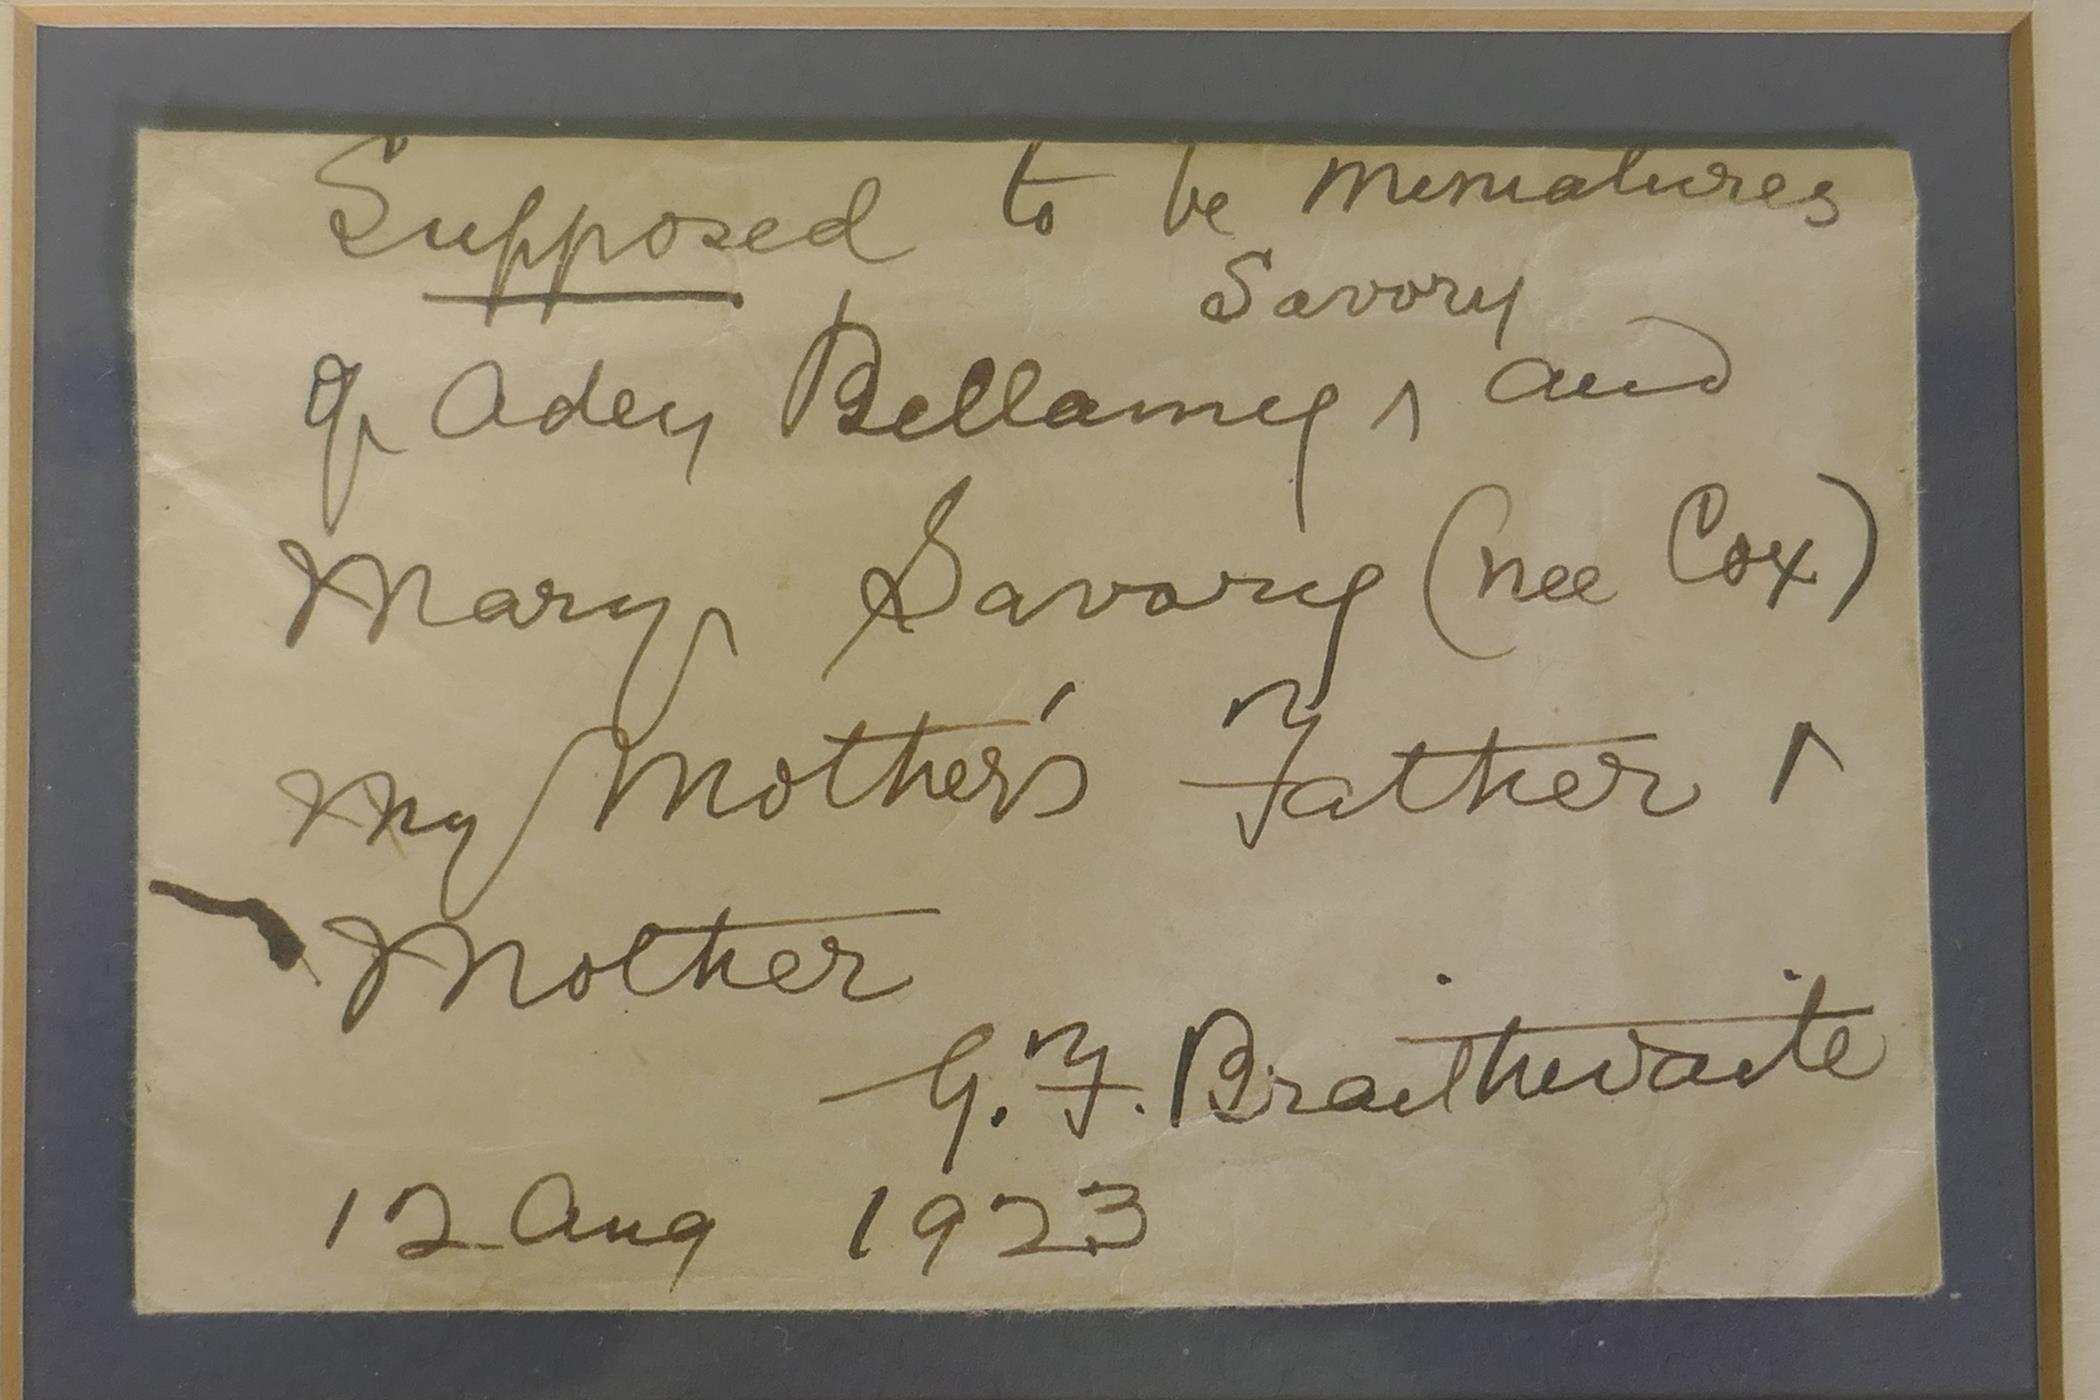 Supposed to be miniatures
Savory
of Adey Bellamy ^ and
Mary Savory (nee Cox)
My Mother's Father &
Mother
G. F. Braithwaite
12 Aug 1923